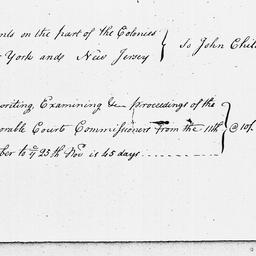 nts on the part of the Colonies
York and New Jersey } To John Chil
writing, Examining &c proceedings of the
orable Courts Commissioners from the 11th } @ 10/.
ber to 25th Nov is 45 days